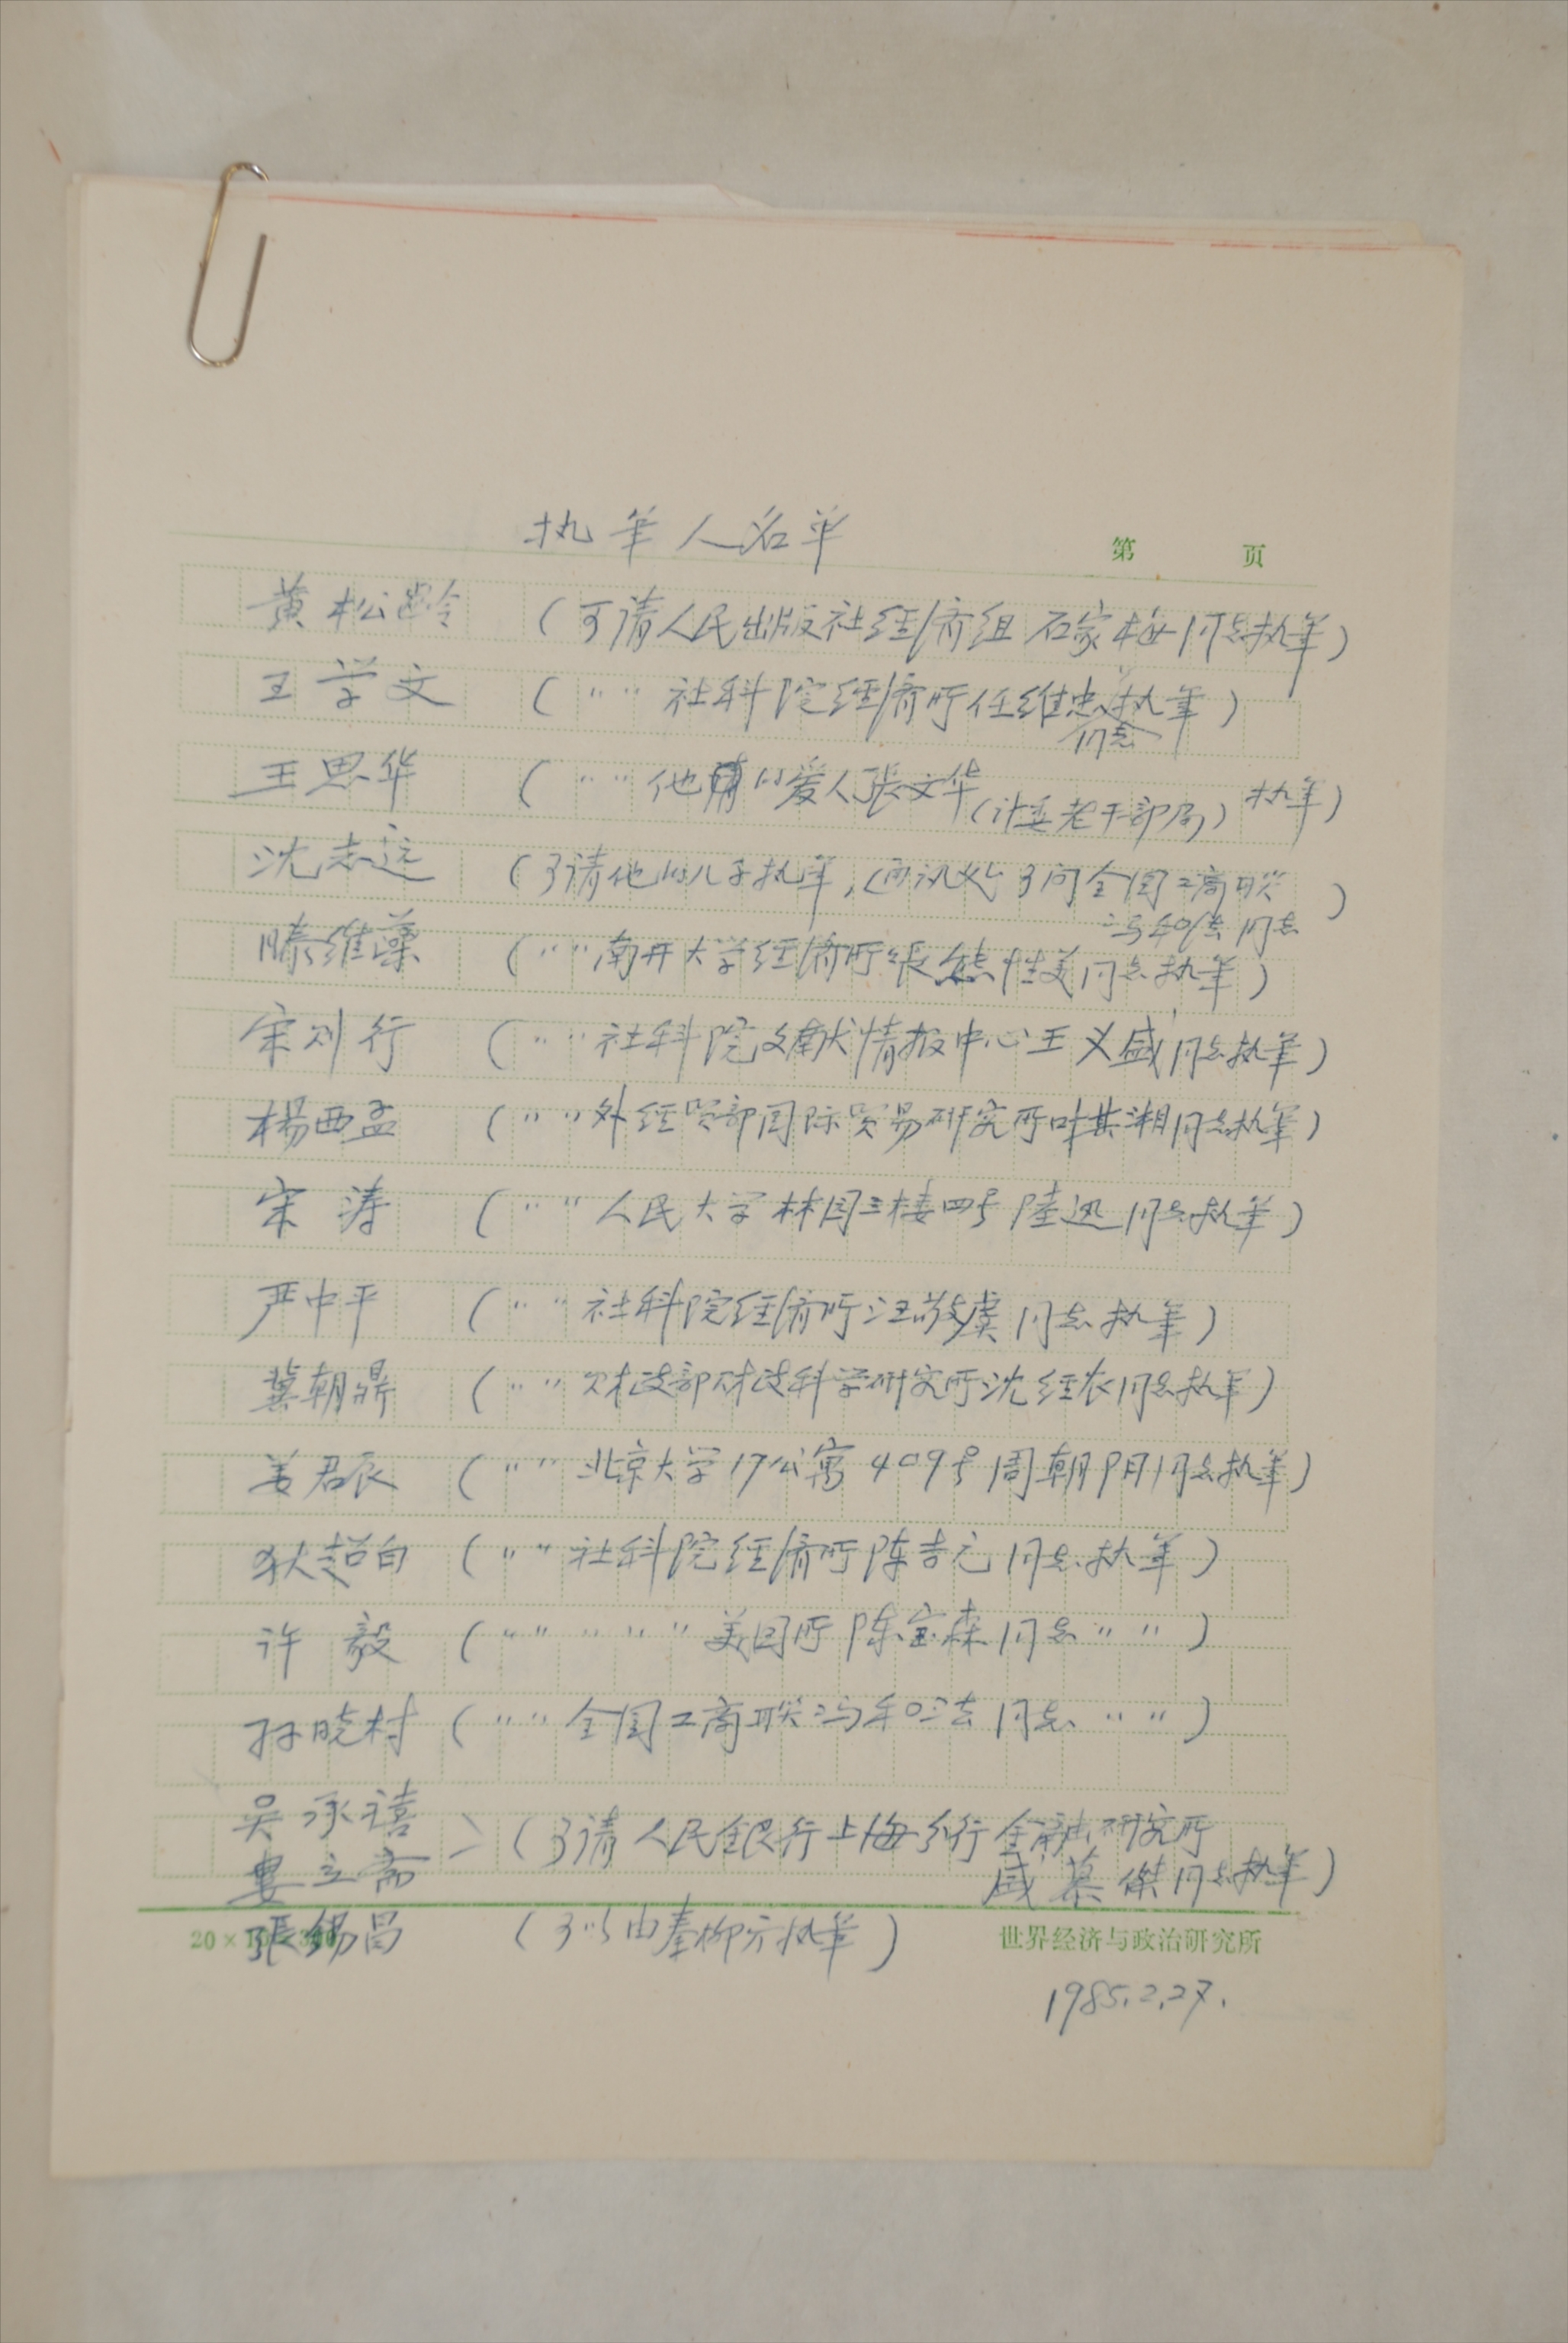 执笔人名单
第 页
黄松龄 (可请人民出版社经济组石家梅同志执笔)
王学文 (〃〃社科院经济所任维忠同志执笔)
王思华 (〃〃他的爱人張文华(计委老干部局)执笔)
沈志远 (可请他的儿子执笔,通讯处可问全国工商联冯和法同志)
滕维藻 (〃〃南开大学经济所熊性美同志执笔)
宋则行 (〃〃社科院文献情报中心王义盛同志执笔)
楊西孟 (〃〃外经贸部国际贸易研究所叶其湘同志执笔)
宋涛 (〃〃人民大学林园三楼四号陸迅同志执笔)
严中平 (〃〃社科院经济所汪敬虞同志执笔)
冀朝鼎 (〃〃财政部财政科学研究所沈经农同志执笔)
姜君辰 (〃〃北京大学17公寓409号周朝阳同志执笔)
狄超白 (〃〃社科院经济所陈吉元同志执笔)
许毅 (〃〃〃〃〃美国所陈宝森同志〃〃)
孙晓村 (〃〃全国工商联冯和法同志〃〃)
吴承禧
娄立斋 (可请人民银行上海分行金融研究所
盛慕傑同志执笔)
張錫昌 (可以由秦柳方执笔)
世界经济与政治研究所
1985.2.27.